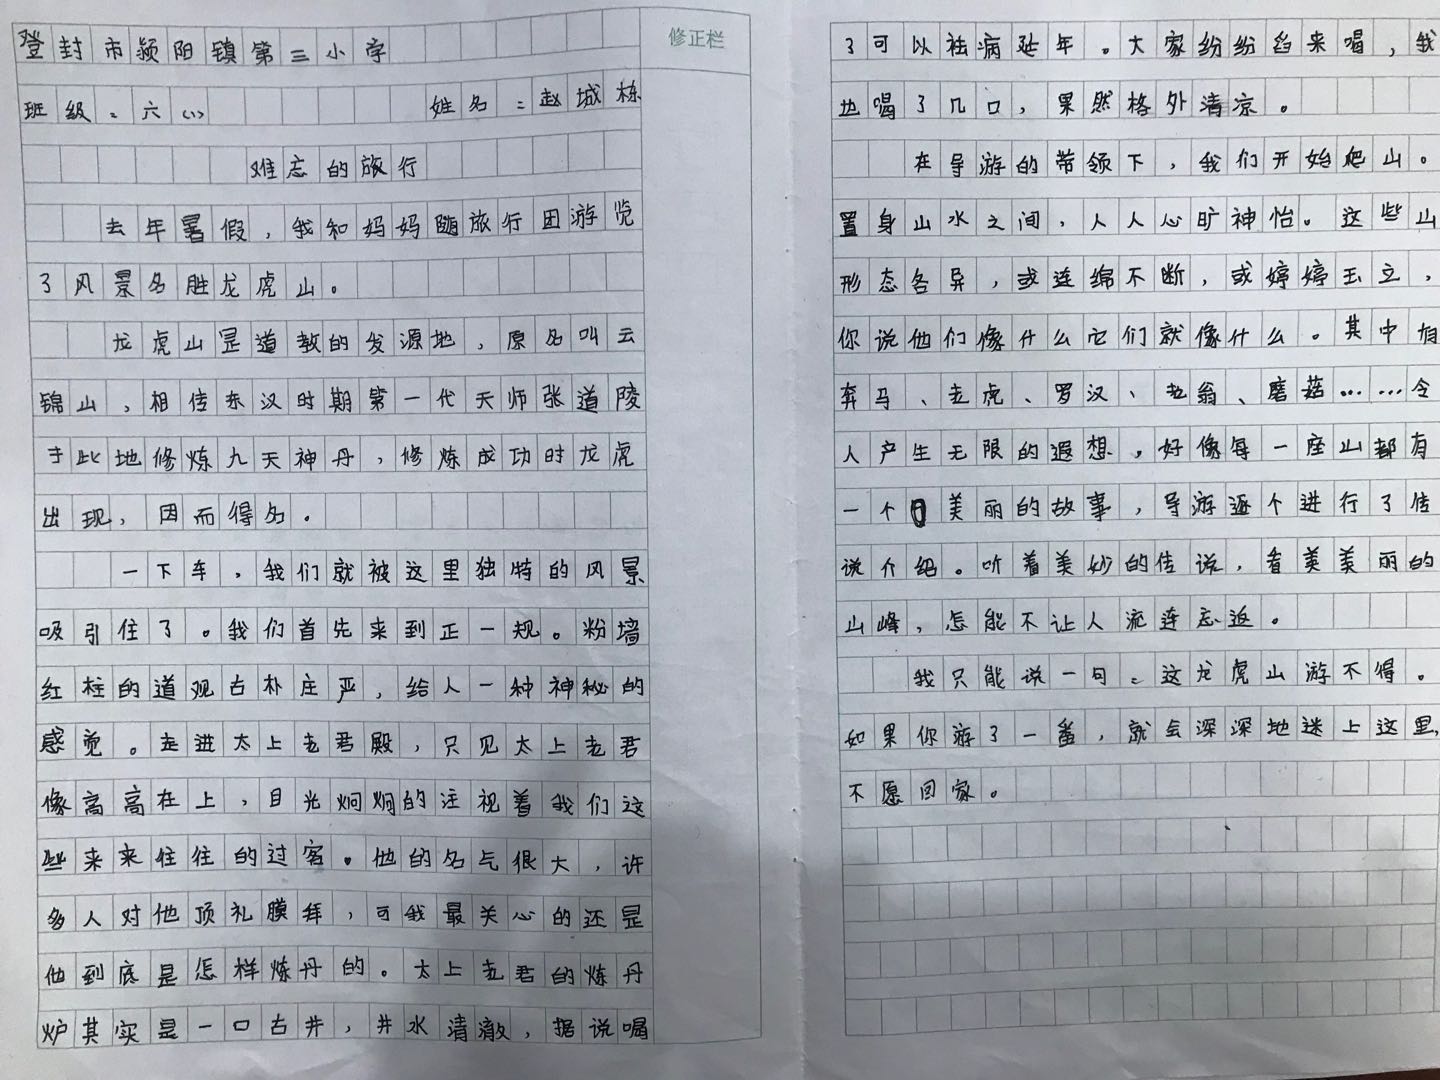 登封市颍阳镇第三小学
修正栏
班级：六（1） 姓名：赵城栋
难忘的旅行
去年暑假，我和妈妈随旅行团游览
了风景名胜龙虎山。
龙虎山是道教的发源地，原名叫云
锦山，相传东汉时期第一代天师张道陵
于此地修炼九天神丹，修炼成功时龙虎
出现，因而得名。
一下车，我们就被这里独特的风景
吸引住了。我们首先来到正一观。粉墙
红柱的道观古朴庄严，给人一种神秘的
感觉。走进太上老君殿，只见太上老君
像高高在上，目光炯炯的注视着我们这
些来来往往的过客。他的名气很大，许
多人对他顶礼膜拜，可我最关心的还是
他到底是怎样炼丹的。太上老君的炼丹
炉其实是一口古井，井水清澈，据说喝
了可以祛病延年。大家纷纷舀来喝，我
也喝了几口，果然格外清凉。
在导游的带领下，我们开始爬山。
置身山水之间，人人心旷神怡。这些山
形态各异，或连绵不断，或婷婷玉立，
你说他们像什么它们就像什么。其中有
奔马、老虎、罗汉、老翁、磨菇……令
人产生无限的遐想。好像每一座山都有
一个美丽的故事，导游逐个进行了传
说介绍。听着美妙的传说，看美美丽的
山峰，怎能不让人流连忘返。
我只能说一句：这龙虎山游不得。
如果你游了一番，就会深深地迷上这里，
不愿回家。